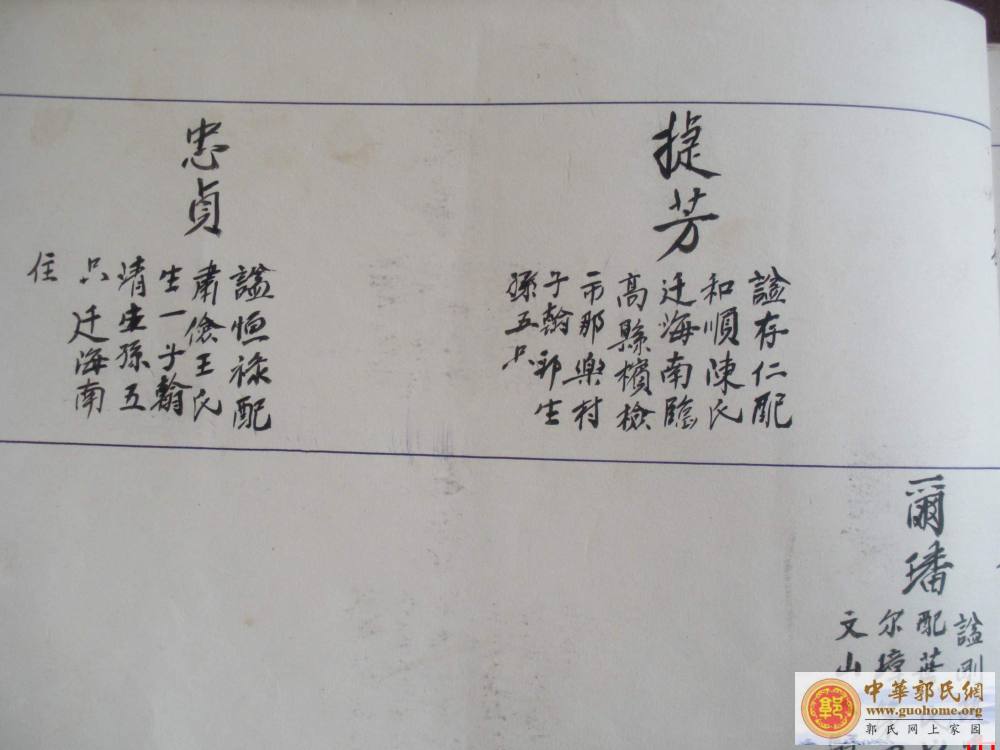 捷芳
謚存仁配
和順陳氏
迁海南臨
高縣檳檢
市那樂村
子翰 郭生
孫五只
忠貞
謚恒祿配
肅儉王氏
生一子翰
靖生孫五
只 迁海南
住
爾璠
謚剛
配葉
尔璋
文山
中華郭氏網
www.guohome.org
郭氏网上家园